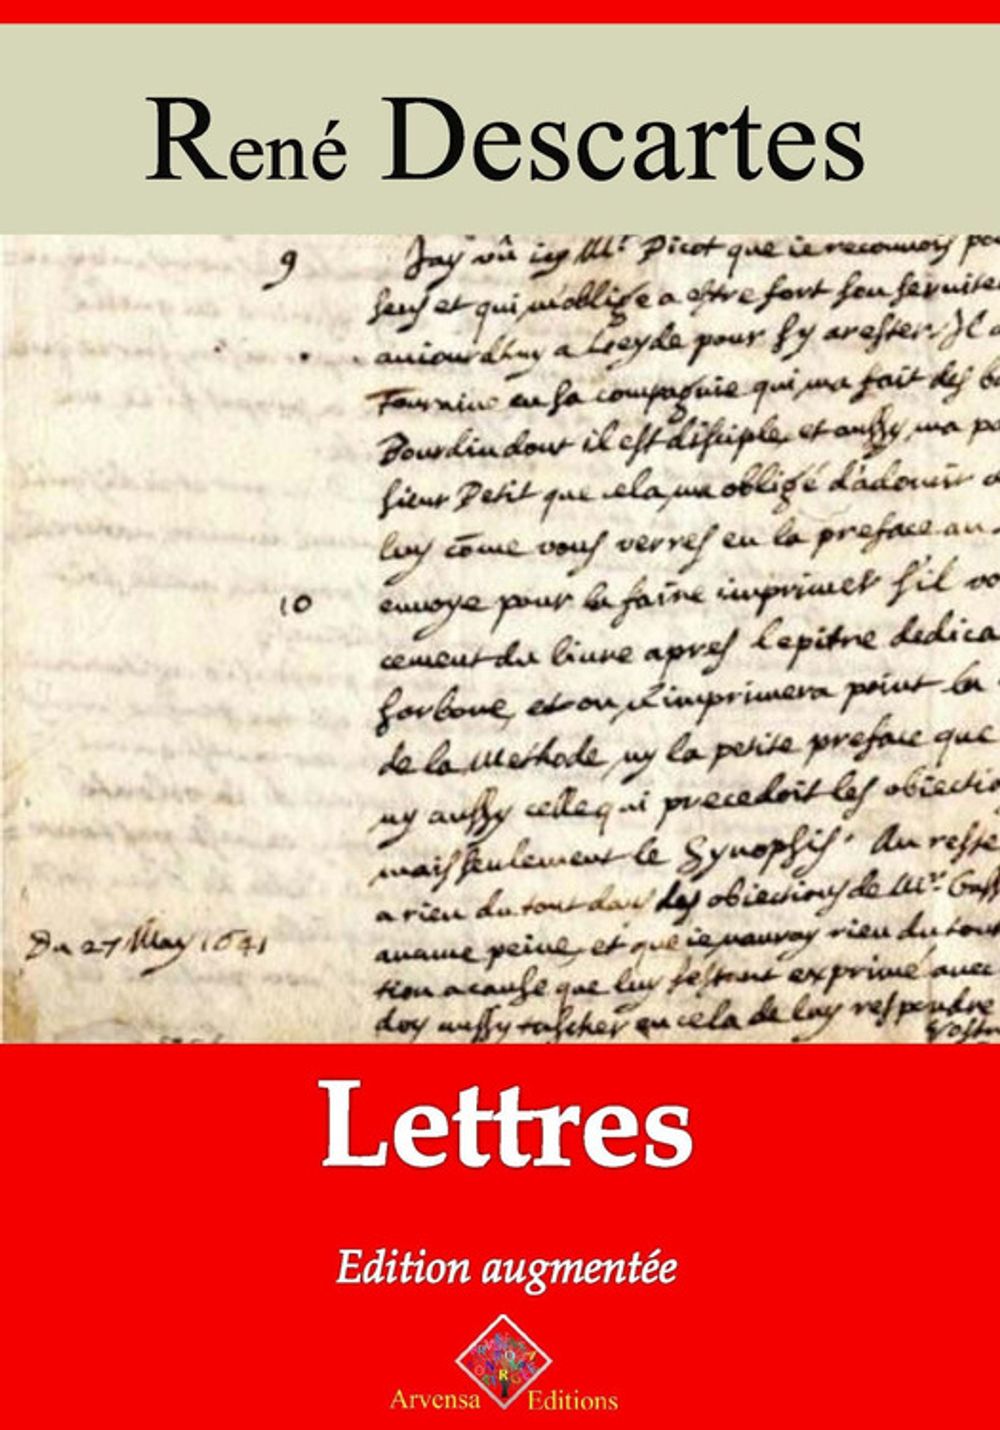 René Descartes
9 Jay vû icy Mr. Picot que ie reconnois po
sens et qui m'oblige a estre fort son seruite
auiourdhuy a Leyde pour s'y arester. Il a
Touraine en sa compagnie qui ma fait des b
Bourdin dont il est disciple, et aussy ma pa
sieur Petit que cela ma obligé d'adoucir
luy cõme vous verres en la preface au
10 enuoye pour la faire imprimer s'il vo
cement du liure apres l'epitre dedica
Sorbone, et on n'imprimera point la
de la Methode ny la petite preface que
ny aussy celle qui precedoit les obiectio
mais seulement le Synopsis. Au reste
a rien du tout dans les obiections de Mr. Gass
aucune peine, et que ie nauray rien du tout
Du 27 May 1641
tion a cause que luy sestant exprimé auec
doy aussy tascher en cela de luy respondre
Vostr
Lettres
Edition augmentée
Arvensa Editions